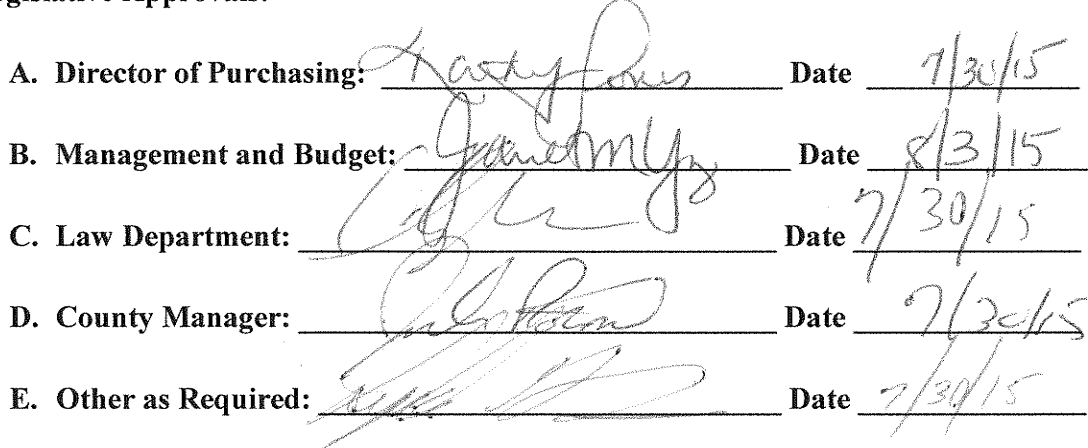 A. Director of Purchasing: Date 7/30/15
B. Management and Budget: Janet M Date 8/3/15
C. Law Department: Date 7/30/15
D. County Manager: Date 7/30/15
E. Other as Required: Date 7/30/15